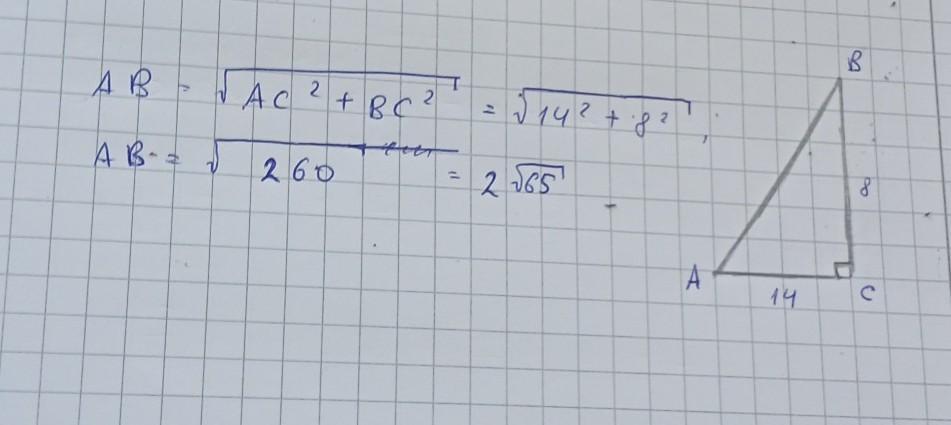 AB = √AC² + BC² = √14² + 8²,
AB = √260 = 2√65
B
8
A
14
C